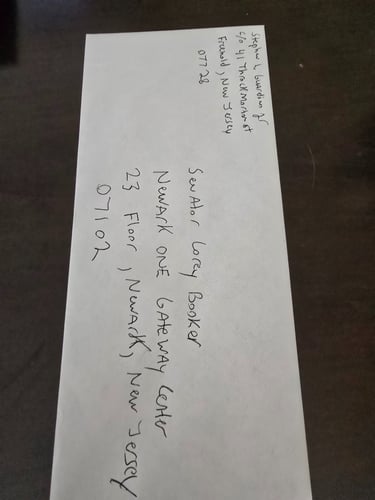 Stephen L Guardian Jr
c/o 41 Throckmorton st
Freehold, New Jersey
07728
Senator Corey Booker
Newark ONE GATEWAY Center
23 Floor, Newark, New Jersey
07102